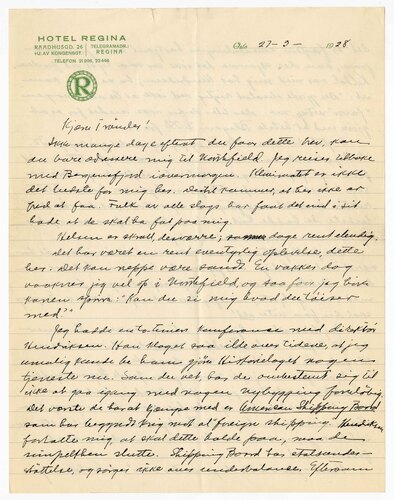 HOTEL REGINA
RAADHUSGD. 26
HJ. AV KONGENSGT.
TELEGRAMADR.:
REGINA
TELEFON 21996, 22446
R
Oslo 27-3-1928
Kjære Frænder!
Ikke mange dage efterat du faar dette brev, kan
du bare adressere mig til Northfield. Jeg reiser tilbake
med Bergensfjord iovermorgen. Klimatet er ikke
det bedste for mig her. Dertil kommer, at her ikke er
fred at faa. Folk av alle slags har faat det ind i sit
hode at de skal ha fat paa mig.
Helsen er skral, desværre; dage rent elendig.
Det har været en rent eventyrlig oplevelse, dette
her. Det kan neppe være sandt. En vakker dag
vaakner jeg vel op i Northfield, og saa faar jeg
konen spørre: "Kan du si mig hvad det
med".
Jeg hadde en to-timers konferanse med direktør
Henriksen. Han klaget saa ille over tiderne, at jeg
umulig kunde be ham gjøre Historielaget nogen
tjeneste nu. Som du vet, har de ombestemt sig til
ikke at paa igang med nogen nybygging foreløbig.
Det værste de har at kjempe med er American Shipping Board
som har begyndt krig mot al foreign shipping. Henriksen
fortalte mig at skal dette holde paa, maa de
simpelthen slutte. Shipping Board har statsunder-
støttelse, og sørger ikke over underbalance. Eftersom